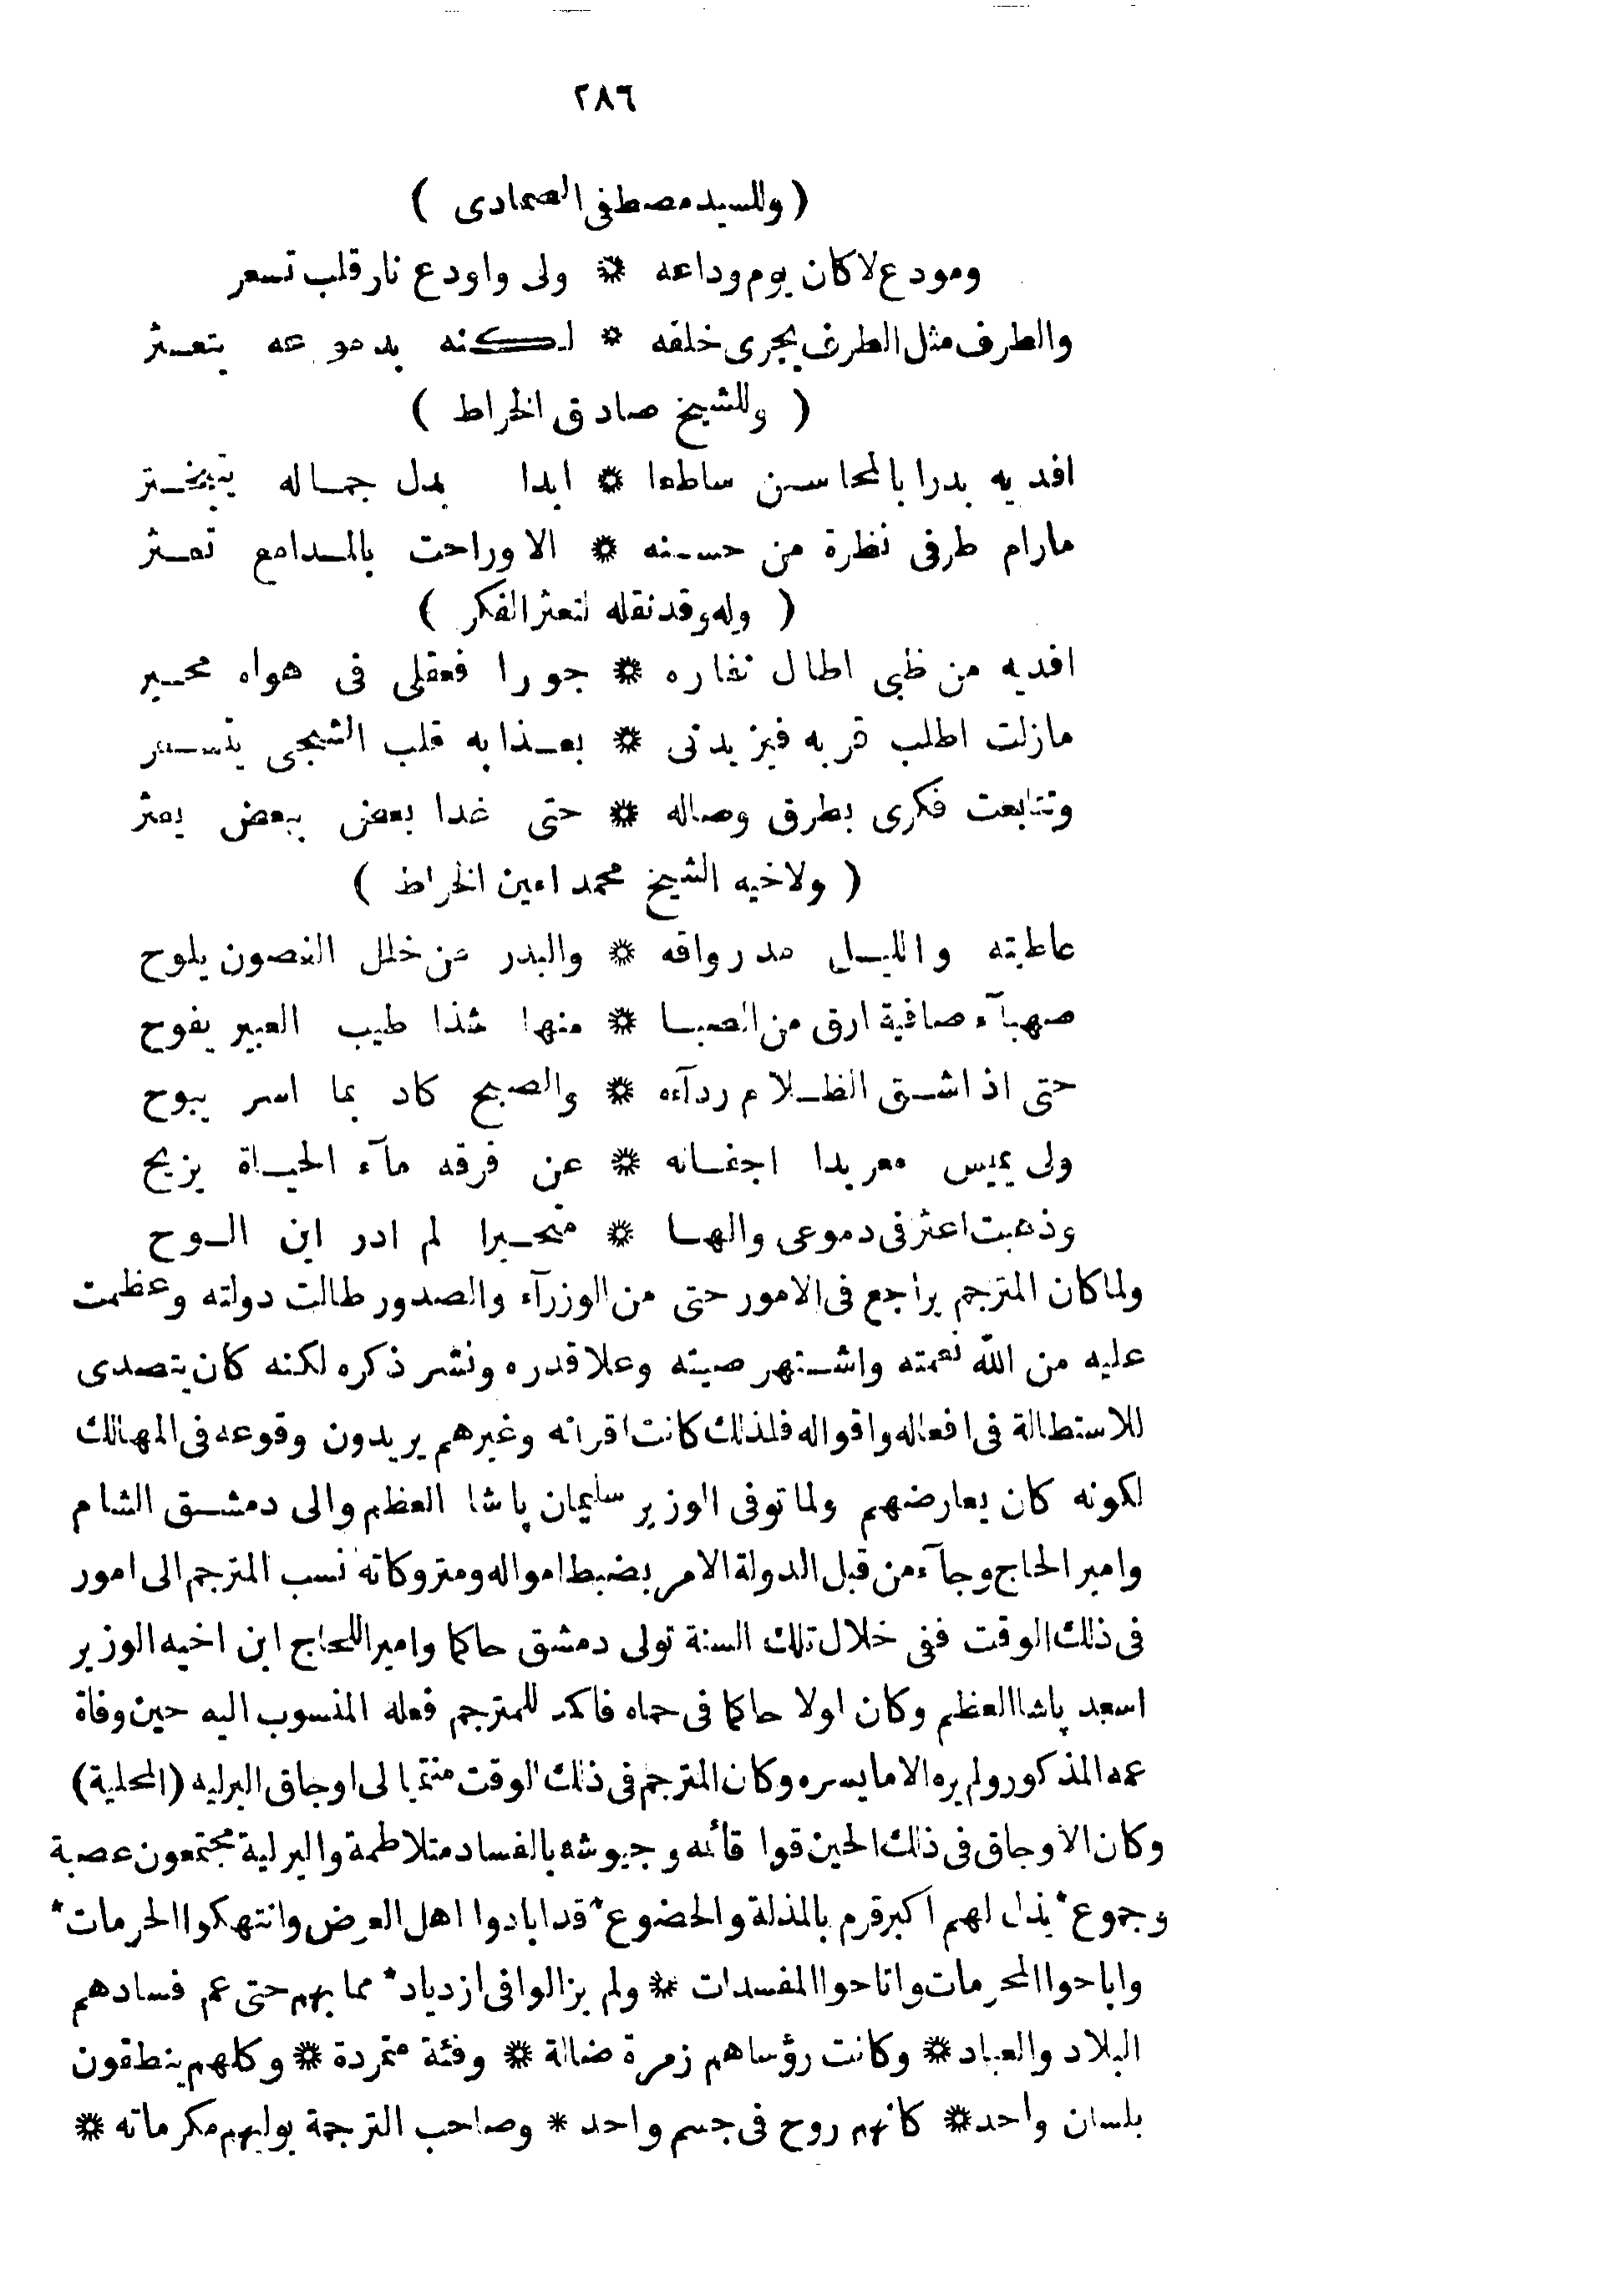 ٢٨٦
( وللسيد مصطفى الصمادى )
ومودع لا كان يوم وداعه * ولى واودع نار قلب تسعر
والطرف مثل الطرف يجرى خلفه * لكنه بدموعه يتعثر
( وللشيخ صادق الخراط )
افديه بدرا بالمحاسن ساطعا * ابدا بدل جماله يتبختر
مارام طرفى نظرة من حسنه * الا وراحت بالمدامع تعثر
( وله وقد نقله لتعثر الفكر )
افديه من ظبى اطال نفاره * جورا فعقلى فى هواه محير
مازلت اطلب قربه فيزيدنى * بعذابه قلب الشجى يتسعر
وتتابعت فكرى بطرق وصاله * حتى غدا بعض ببعض يعثر
( ولاخيه الشيخ محمد امين الخراط )
عاطيته والليل مد رواقه * والبدر من خلل الغصون يلوح
صهبآء صافية ارق من الصبا * منها شذا طيب العبير يفوح
حتى اذا شق الظلام ردآءه * والصبح كاد بما اسر يبوح
ولى يميس معربدا اجفانه * عن فرقه مآء الحياة يزيح
وذهبت اعثر فى دموعى والها * متحيرا لم ادر اين الوح
ولما كان المترجم يراجع فى الامور حتى من الوزرآء والصدور طالت دولته وعظمت
عليه من الله نعمته واشتهر صيته وعلا قدره ونشر ذكره لكنه كان يتصدى
للاستطالة فى افعاله واقواله فلذلك كانت اقرانه وغيرهم يريدون وقوعه فى المهالك
لكونه كان يعارضهم ولما توفى الوزير سليمان پاشا العظم والى دمشق الشام
وامير الحاج وجآء من قبل الدولة الامر بضبط امواله ومتروكاته نسب المترجم الى امور
فى ذلك الوقت ففى خلال تلك السنة تولى دمشق حاكما واميرا للحاج ابن اخيه الوزير
اسعد پاشا العظم وكان اولا حاكما فى حماه فاكد للمترجم فعله المنسوب اليه حين وفاة
عمه المذكور ولم يره الا ما يسره وكان المترجم فى ذلك الوقت منتميا الى اوجاق اليرليه (المحلية)
وكان الاوجاق فى ذلك الحين قوا قائه وجيوشه بالفساد متلاطمة واليرلية مجتمعون عصبة
وجموع * يذل لهم اكبر قرم بالمذلة والخضوع * قد ابادوا اهل العرض وانتهكوا الحرمات *
واباحوا المحرمات واتاحوا المفسدات * ولم يزالوا فى ازدياد * مما بهم حتى عم فسادهم
البلاد والعباد * وكانت رؤساهم زمرة ضالة * وفئة متمردة * وكلهم ينطقون
بلسان واحد * كانهم روح فى جسم واحد * وصاحب الترجمة يوليهم مكرماته *